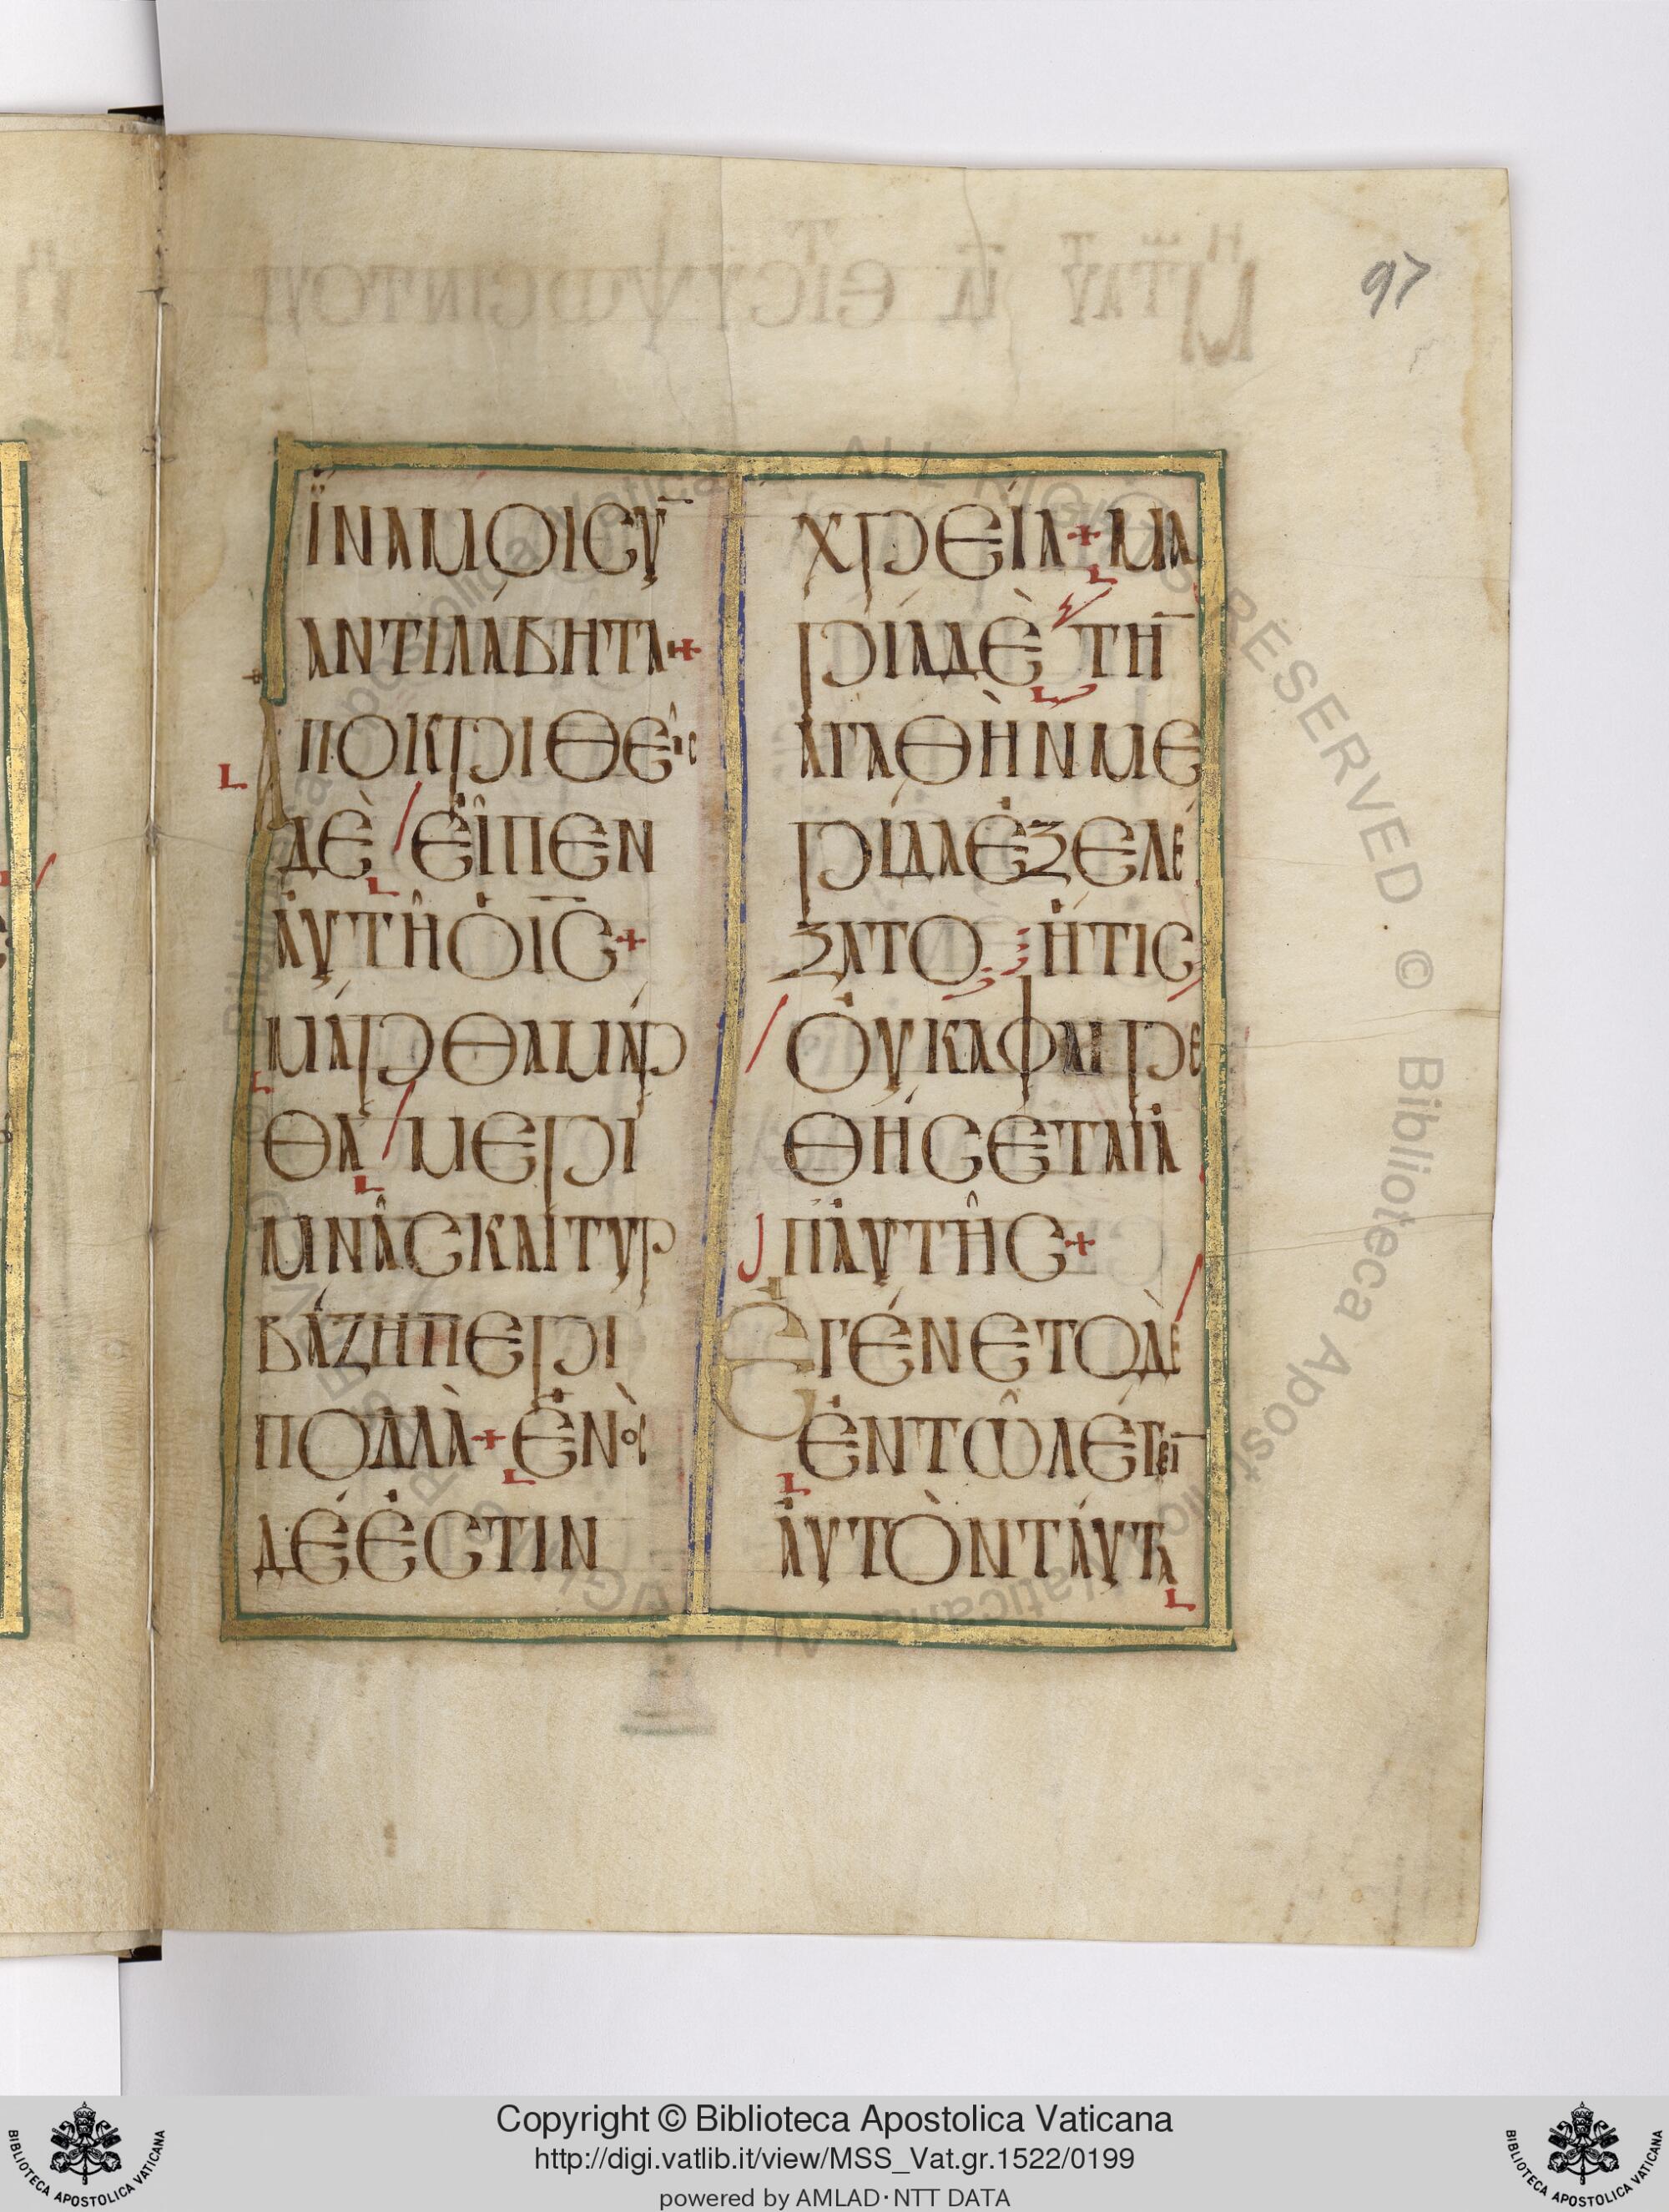 97
ἵΝΑΜΟΙCΥ̅
ΑΝΤΙΛΆΒΗΤΑ+
ἈΠΟΚΡΙΘΕῚC
ΔῈ ΕἾΠΕΝ
ἈΥΤΗ͂ὉΙ̅C̅+
ΜΆΡΘΑΜΆΡ
ΘΑ ΜΕΡΙ
ΜΝΑ͂CΚΑῚΤΥΡ
ΒΆΖΗΠΕΡΙ
ΠΟΛΛᾺ+ἙΝῸC
ΔΈἘCΤΙΝ
ΧΡΕΊΑ+ΜΑ
ΡΊΑΔῈ ΤΗ̅
ἈΓΑΘῊΝΜΕ
ΡΊΔΑἘΞΕΛΈ
ΞΑΤΟ ἩΤΙC
ὈΥΚΑΦΑΙΡΕ
ΘΉCΕΤΑΙἈ
ΠἈΥΤΗ͂C+
ἘΓΈΝΕΤΟΔῈ
ἘΝΤΩ͂ΛΈΓΕΙ̅
ἈΥΤῸΝΤΆΥΤΑ
Copyright © Biblioteca Apostolica Vaticana
http://digi.vatlib.it/view/MSS_Vat.gr.1522/0199
powered by AMLAD·NTT DATA
BIBLIOTECA APOSTOLICA VATICANA
BIBLIOTECA APOSTOLICA VATICANA